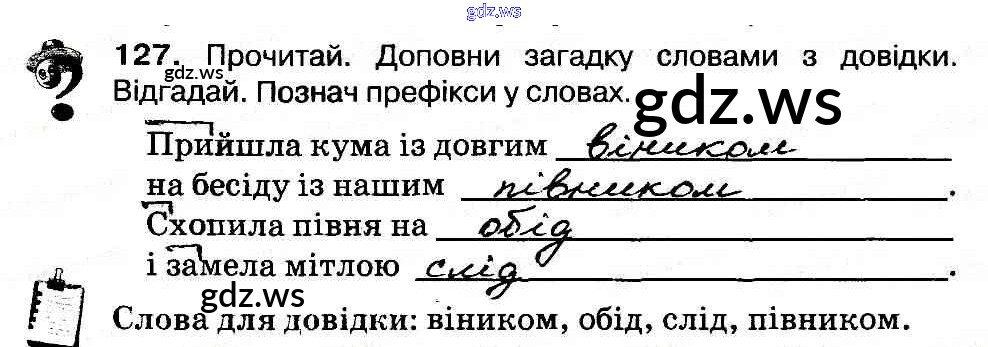 gdz.ws
127. Прочитай. Доповни загадку словами з довідки.
gdz.ws
Відгадай. Познач префікси у словах.
gdz.ws
Прийшла кума із довгим віником
на бесіду із нашим півником.
Схопила півня на обід
і замела мітлою слід.
gdz.ws
Слова для довідки: віником, обід, слід, півником.